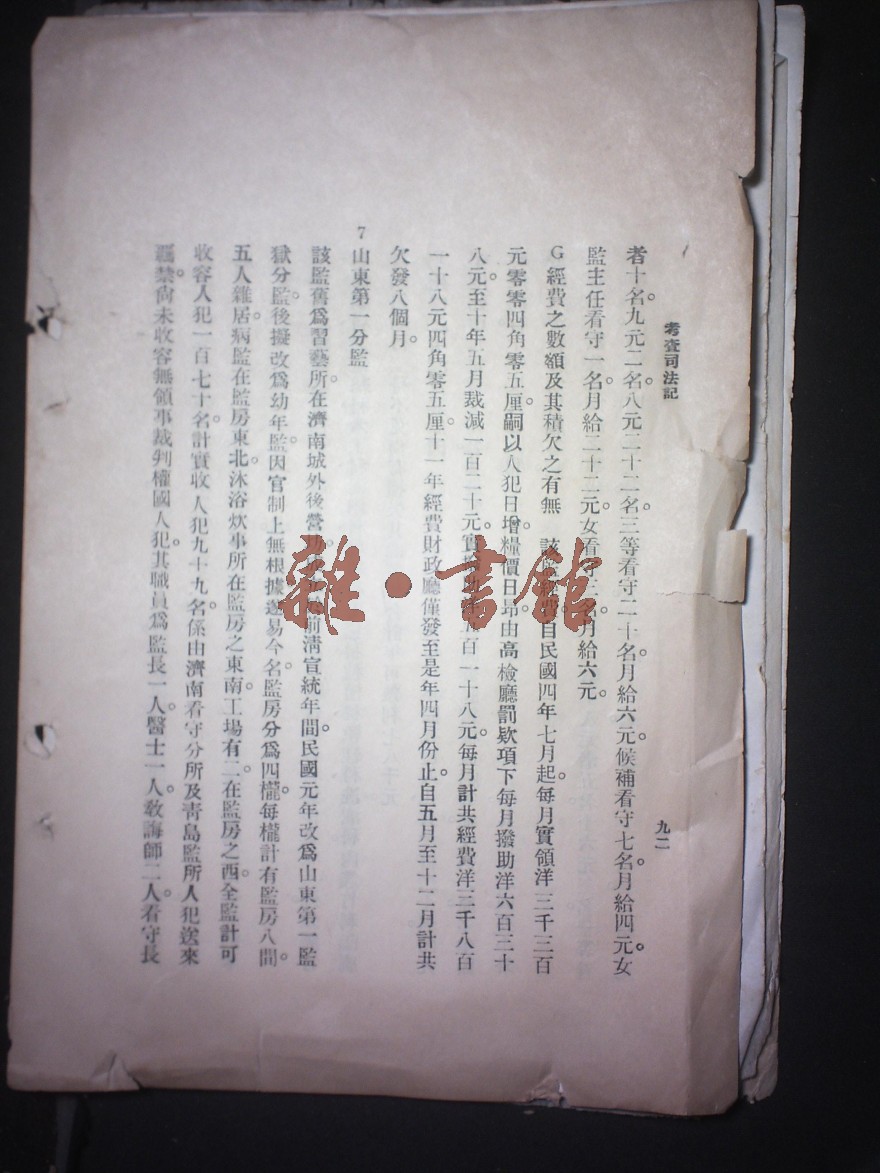 考查司法記
九二
者十名。九元二名。八元二十二名。三等看守二十名。月給六元。候補看守七名。月給四元。女
監主任看守一名。月給二十二元。女看守三名。月給六元。
G 經費之數額及其積欠之有無 該監經費。自民國四年七月起。每月實領洋三千三百
元零零四角零五厘。嗣以人犯日增。糧價日昂。由高檢廳罰欵項下每月撥助洋六百三十
八元。至十年五月裁減一百二十元。實 五百一十八元。每月計共經費洋三千八百
一十八元四角零五厘。十一年經費財政廳僅發至是年四月份止。自五月至十二月計共
欠發八個月。
7 山東第一分監
該監舊爲習藝所。在濟南城外後營 前淸宣統年間。民國元年改爲山東第一監
獄分監。後擬改爲幼年監。因官制上無根據。遂易今名。監房分爲四櫳。每櫳計有監房八間。
五人雜居。病監在監房東北。沐浴炊事所在監房之東南。工場有二。在監房之西。全監計可
收容人犯一百七十名。計實收人犯九十九名。係由濟南看守分所及靑島監所人犯送來
羈禁。尙未收容無領事裁判權國人犯。其職員爲監長一人。醫士一人。敎誨師二人。看守長
雜·書館